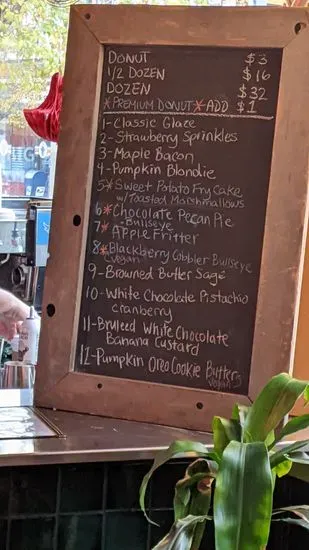 DONUT $3
1/2 DOZEN $16
DOZEN $32
*PREMIUM DONUT* ADD $1
1-Classic Glaze
2-Strawberry Sprinkles
3-Maple Bacon
4-Pumpkin Blondie
5*Sweet Potato Fry Cake
w/ Toasted Marshmallows
6*Chocolate Pecan Pie
-Bullseye
7*APPLE Fritter
8*Blackberry Cobbler Bullseye
vegan
9-Browned Butter Sage
10-White Chocolate Pistachio
cranberry
11-Bruleed White Chocolate
Banana Custard
12-Pumpkin Oreo Cookie Butter
vegan